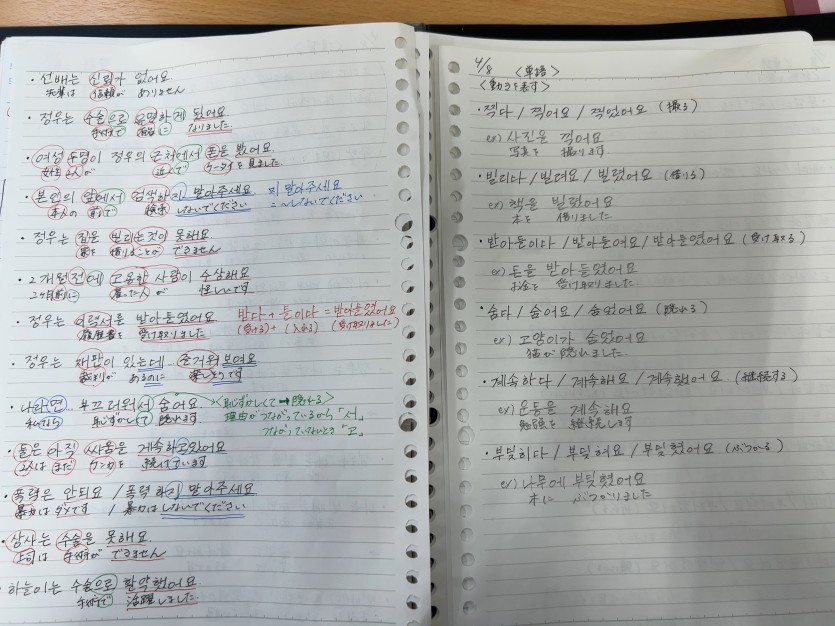 ・선배는 신뢰가 없어요.
先輩は 信頼が ありません
・정우는 수술으로 유명하게 됬어요
手術で 有名に なりました
・여성 두명이 정우의 근처에서 폰을 봤어요.
女性2人が 近くで ケータイを見ました
・본인의 앞에서 검색하지 말아주세요 지 말아주세요
本人の 前で 検索 しないでください =〜しないでください
・정우는 집을 빌리는것이 못해요
家を 借りることが できません
・2개월전에 고용한 사람이 수상해요
2ヶ月前に 雇った人が 怪しいです
・정우는 이력서를 받아들였어요 받다 + 들이다 = 받아들였어요
履歴書を 受け取りました (受ける)+(入れる) (受け取りました)
・정우는 재판이 있는데 즐거워보여요
裁判が あるのに 楽しそうです
・나라면 부끄러워서 숨어요 <恥ずかしくて→隠れる>
私なら 恥ずかしくて 隠れます 理由がつながっているから「서」
つながっていないとき「고」
・둘은 아직 싸움을 계속하고있어요
2人は まだ ケンカを 続けています
・폭력은 안되요 / 폭력하지 말아주세요
暴力はダメです / 暴力はしないでください
・상사는 수술을 못해요
上司は 手術が できません
・하늘이는 수술으로 활약했어요
手術で 活躍しました
4/8 <単語>
<動きを表す>
・찍다 / 찍어요 / 찍었어요 (撮る)
ex) 사진을 찍어요
写真を 撮ります
・빌리다 / 빌려요 / 빌렸어요 (借りる)
ex) 책을 빌렸어요
本を 借りました
・받아들이다 / 받아들여요 / 받아들였어요 (受け取る)
ex) 돈을 받아들였어요
お金を 受け取りました
・숨다 / 숨어요 / 숨었어요 (隠れる)
ex) 고양이가 숨었어요
猫が 隠れました.
・계속하다 / 계속해요 / 계속했어요 (継続する)
ex) 운동을 계속해요
継続します
・부딪히다 / 부딪혀요 / 부딪혔어요 (ぶつかる)
ex) 나무에 부딪혔어요
木に ぶつかりました